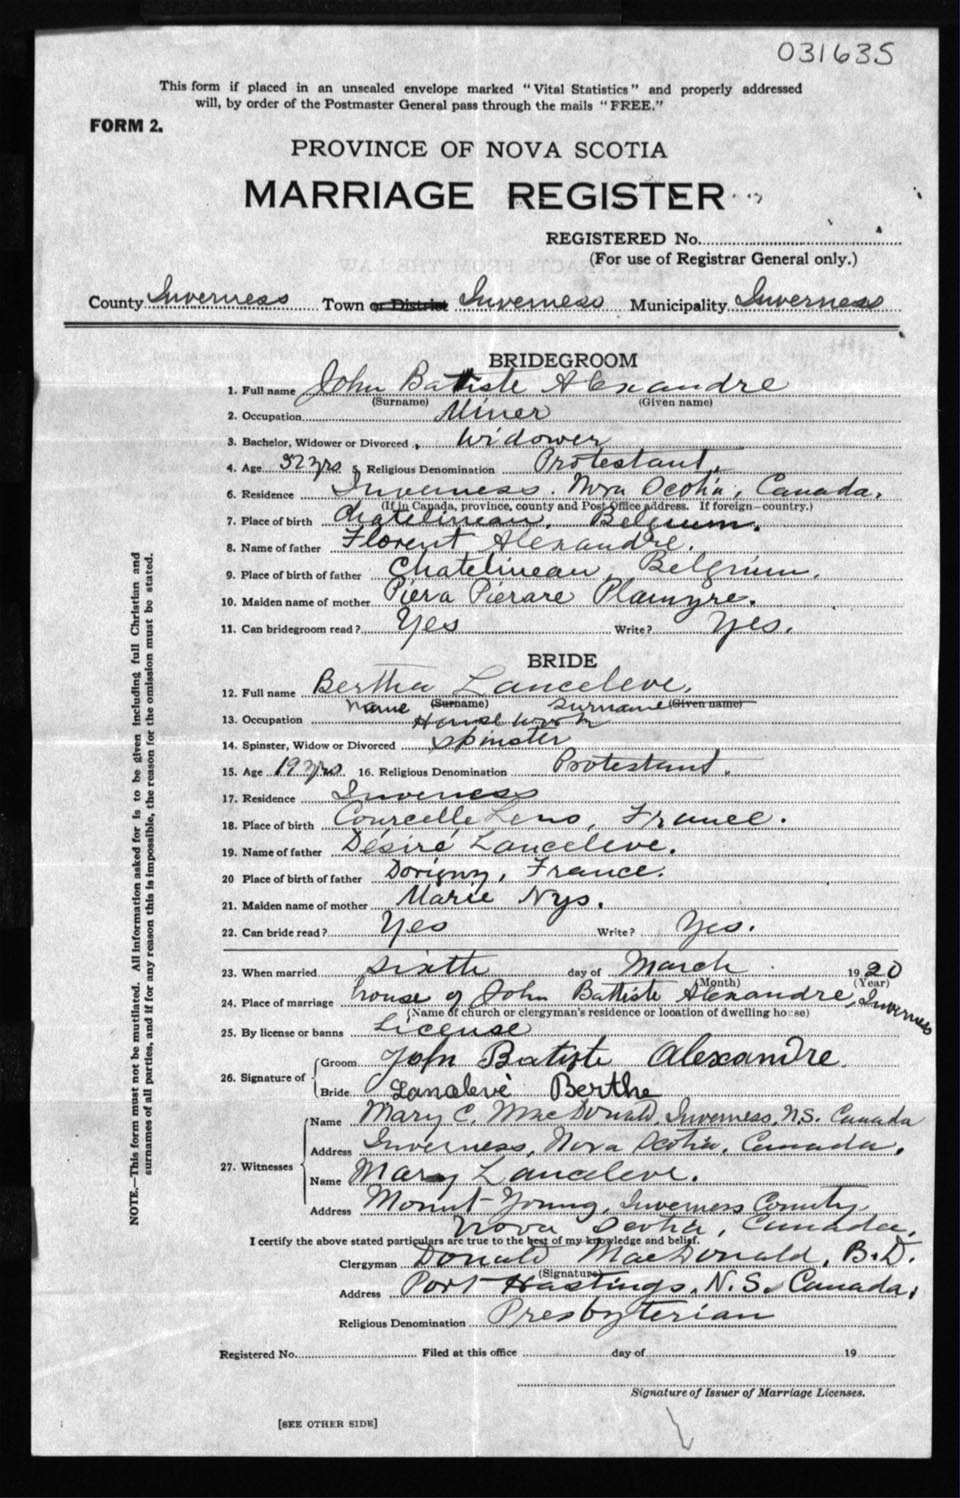 031635
This form if placed in an unsealed envelope marked "Vital Statistics" and properly addressed
will, by order of the Postmaster General pass through the mails "FREE."
FORM 2.
PROVINCE OF NOVA SCOTIA
MARRIAGE REGISTER
REGISTERED No.
(For use of Registrar General only.)
County Inverness Town or District Inverness Municipality Inverness
BRIDEGROOM
1. Full name John Batiste Alexandre
(Surname) (Given name)
2. Occupation Miner
3. Bachelor, Widower or Divorced Widower
4. Age 52 yrs 5. Religious Denomination Protestant.
6. Residence Inverness. Nova Scotia, Canada.
(If in Canada, province, county and Post Office address. If foreign—country.)
7. Place of birth Chatelineau. Belgium.
8. Name of father Florent Alexandre.
9. Place of birth of father Chatelineau, Belgium.
10. Maiden name of mother Piera Pierare Plamyre.
11. Can bridegroom read? Yes Write? Yes.
BRIDE
12. Full name Bertha Lanceleve.
name (Surname) Surname (Given name)
13. Occupation House work
14. Spinster, Widow or Divorced Spinster
15. Age 19 yrs. 16. Religious Denomination Protestant.
17. Residence Inverness
18. Place of birth Courcelle Lens, France.
19. Name of father Désiré Lanceleve.
20 Place of birth of father Dorigny, France.
21. Maiden name of mother Marie Nys.
22. Can bride read? Yes Write? Yes.
23. When married sixth day of March 1920
(Month) (Year)
24. Place of marriage house of John Battiste Alexandre, Inverness
(Name of church or clergyman's residence or location of dwelling house)
25. By license or banns License
26. Signature of Groom John Batiste Alexandre
Bride Lancelevé Berthe
27. Witnesses Name Mary C. MacDonald, Inverness, N.S. Canada
Address Inverness, Nova Scotia, Canada.
Name Mary Lanceleve.
Address Mount Young, Inverness County,
Nova Scotia, Canada.
I certify the above stated particulars are true to the best of my knowledge and belief.
Clergyman Donald MacDonald, B.D.
(Signature)
Address Port Hastings, N.S. Canada,
Religious Denomination Presbyterian
Registered No. Filed at this office day of 19
Signature of Issuer of Marriage Licenses.
[SEE OTHER SIDE]
NOTE.—This form must not be mutilated. All information asked for is to be given including full Christian and
surnames of all parties, and if for any reason this is impossible, the reason for the omission must be stated.